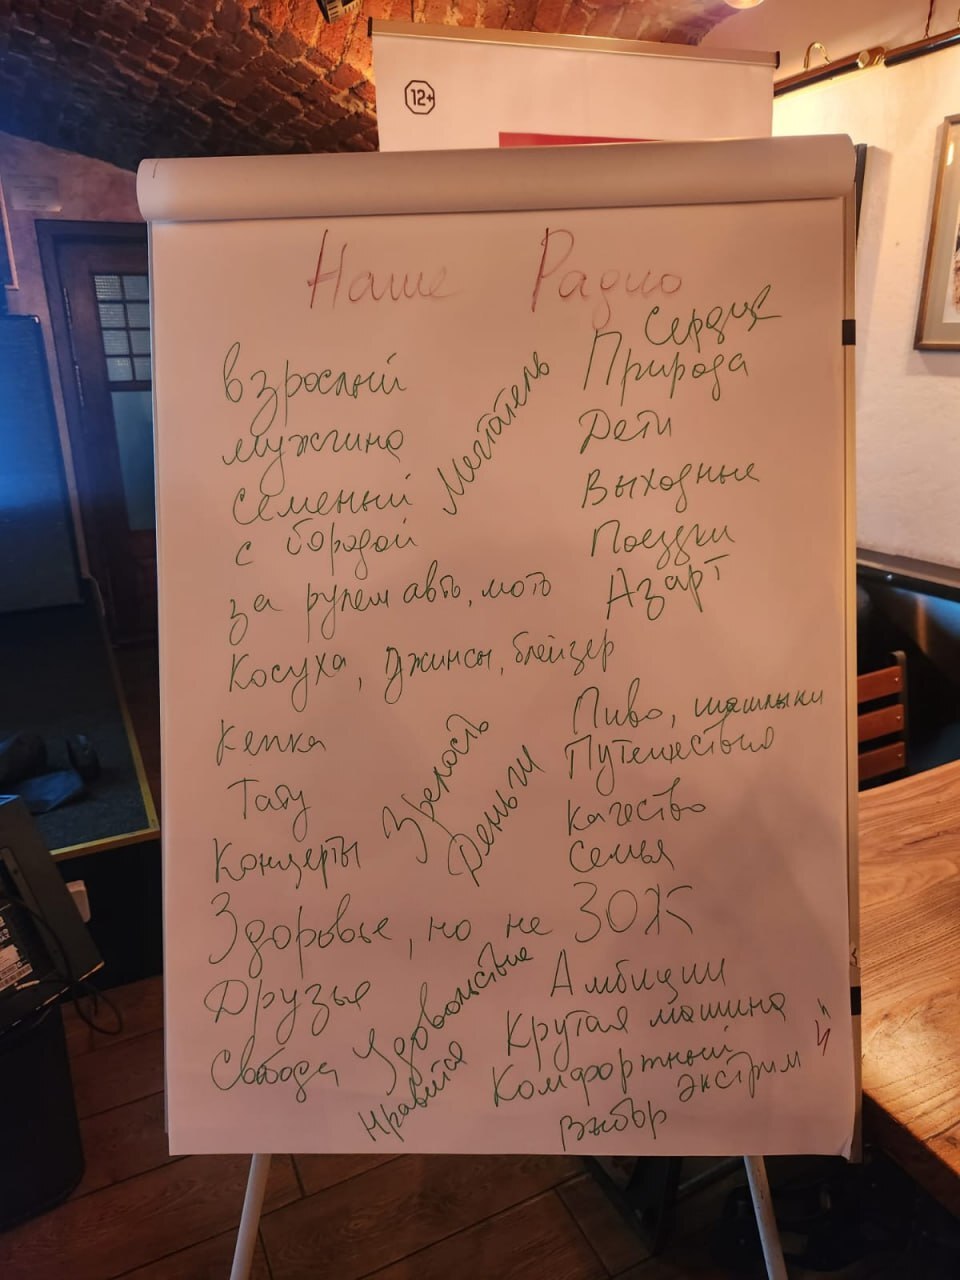 12+
Наше Радио
Сердце
взрослый
Природа
мужчина
Мечтатель
Дети
Семейный
Выходные
с бородой
Поездки
за рулем авто, мото
Азарт
Косуха, джинсы, блейзер
Пиво, шашлыки
Кепка
Зрелость
Путешествия
Тату
Деньги
Качество
Концерты
Семья
Здоровье, но не ЗОЖ
Друзья
Удовольствие
Амбиции
Крутая машина
Свобода
Нравится
Комфортный
экстрим
Выбор
й